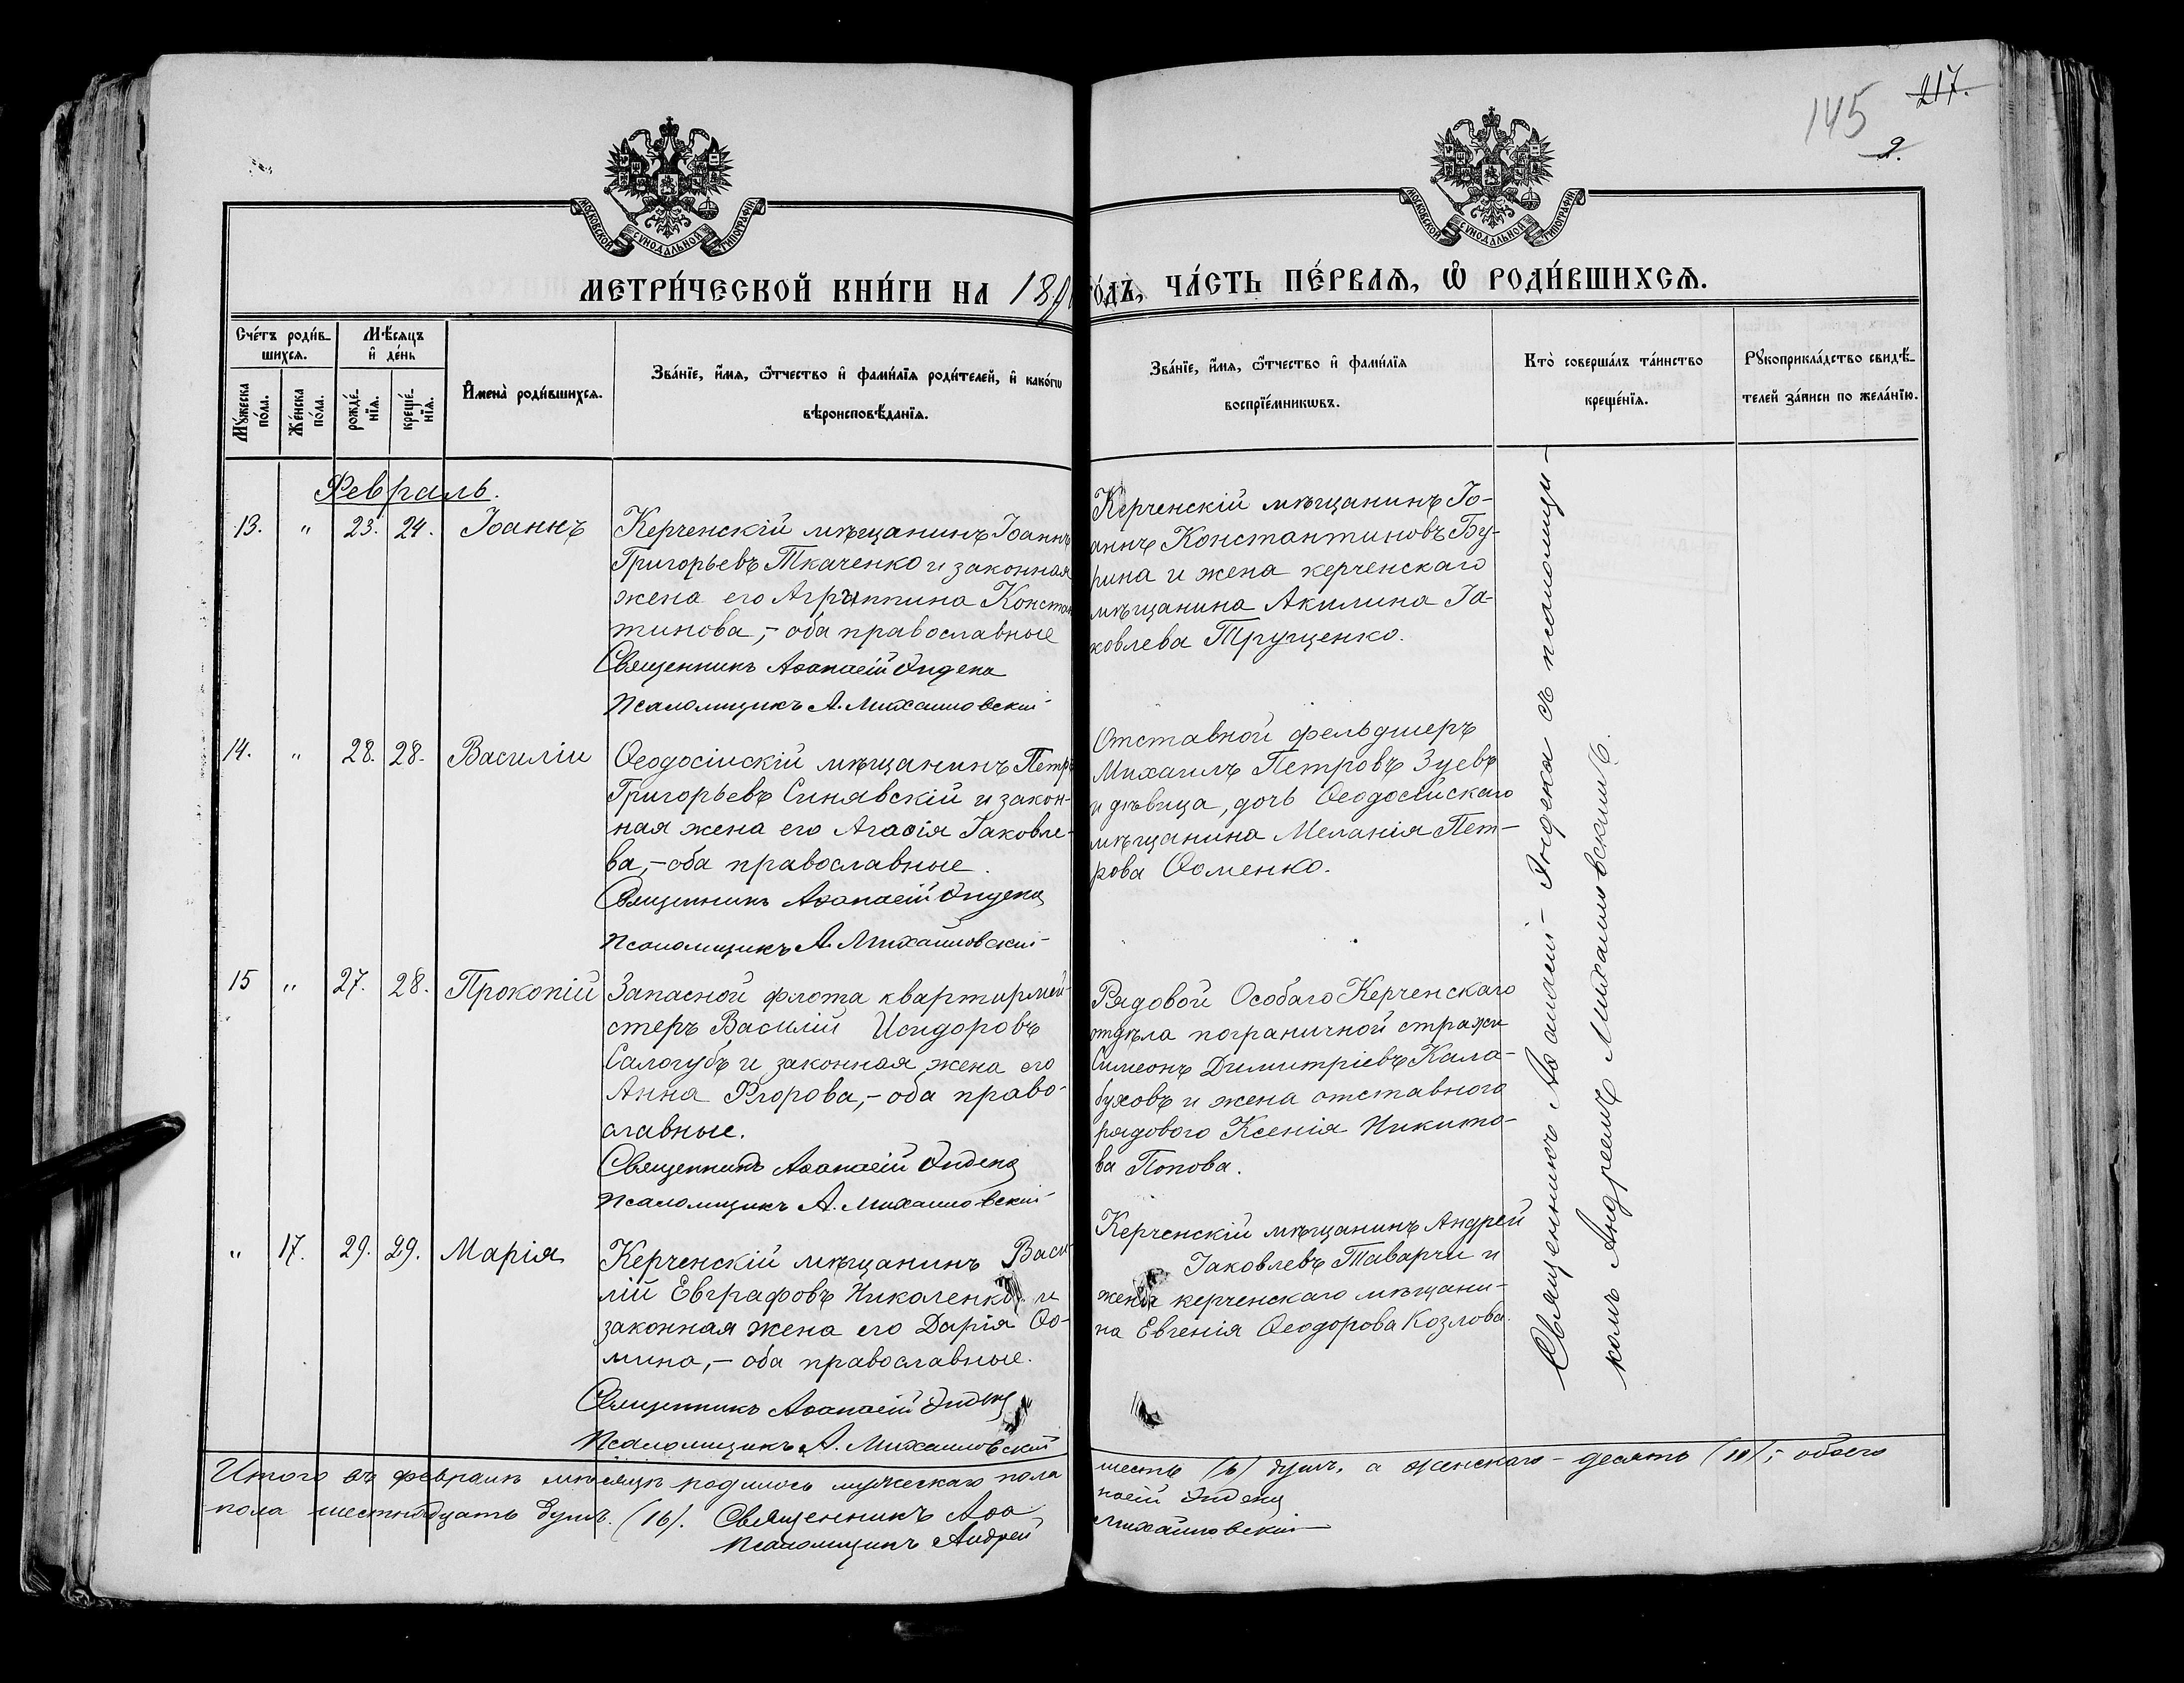 145
217.
2.
МОСКОВСКОЙ СѴНОДАЛЬНОЙ ТИПОГРАФІИ
МОСКОВСКОЙ СѴНОДАЛЬНОЙ ТИПОГРАФІИ
МЕТРИ́ЧЕСКОЙ КНИ́ГИ НА 189
ГО́ДЪ, ЧА́СТЬ ПЕ́РВАѦ, Ѿ РОДИ́ВШИХСѦ.
Сче́тъ роди́в-
шихсѧ.
Мꙋ́жеска
по́ла.
Же́нска
по́ла.
Мѣ́сѧцъ
и҆ де́нь
рожде́-
нїѧ.
креще́-
нїѧ.
И҆мена̀ роди́вшихсѧ.
Зва́нїе, и҆́мѧ, ѻ҆́тчество и҆ фами́лїѧ роди́телей, и҆ како́гѡ
вѣроисповѣ́данїѧ.
Зва́нїе, и҆́мѧ, ѻ҆́тчество и҆ фами́лїѧ
воспрїе́мникѡвъ.
Кто̀ соверша́лъ та́инство
креще́нїѧ.
Рꙋкоприкла́дство свидѣ́-
телей за́писи по жела́нїю.
Февраль.
13. " 23. 24. Іоаннъ
Керченскій мѣщанинъ Іоаннъ
Григорьевъ Ткаченко и законная
жена его Агриппина Констан
тинова,- оба православные
Священникъ Аѳанасій Индека
Псаломщикъ А. Михаиловскій
Керченскій мѣщанинъ Іо-
аннъ Константиновъ Бу-
рина и жена керченскаго
мѣщанина Акилина Іа-
ковлева Трущенко.
14. " 28. 28. Василій
Ѳеодосійскій мѣщанинъ Петръ
Григорьевъ Синявскій и закон-
ная жена его Агаѳія Іаковле-
ва,- оба православные.
Священникъ Аѳанасій Индека
Псаломщикъ А. Михаиловскій
Отставной фельдшеръ
Михаилъ Петровъ Зуевъ
и дѣвица, дочь Ѳеодосійскаго
мѣщанина Меланія Пет-
рова Ѳоменко.
15 " 27. 28. Прокопій
Запасной флота квартирмей-
стеръ Василій Исидоровъ
Салогубъ и законная жена его
Анна Егорова,- оба право-
славные.
Священникъ Аѳанасій Индека
Псаломщикъ А. Михаиловскій
Рядовой Особаго Керченскаго
отдѣла пограничной стражи
Симеонъ Димитріевъ Кала-
буховъ и жена отставного
рядового Ксенія Никито-
ва Попова.
" 17. 29. 29. Марія
Керченскій мѣщанинъ Васи
лій Евграфовъ Николенко и
законная жена его Дарія Ѳо-
мина,- оба православные.
Священникъ Аѳанасій Индека
Псаломщикъ А. Михаиловскій
Керченскій мѣщанинъ Андрей
Іаковлевъ Таварчи и
жена керченскаго мѣщани-
на Евгенія Ѳеодорова Козлова.
Священникъ Аѳанасій Индека съ псаломщи-
комъ Андреемъ Михаиловскимъ.
Итого въ февралѣ мѣсяцѣ родилось мужескаго пола
шесть (6) душъ, а женскаго - десять (10); обоего
пола шестнадцать душъ. (16). Священникъ Аѳа
насій Индека
Псаломщикъ Андрей
Михаиловскій